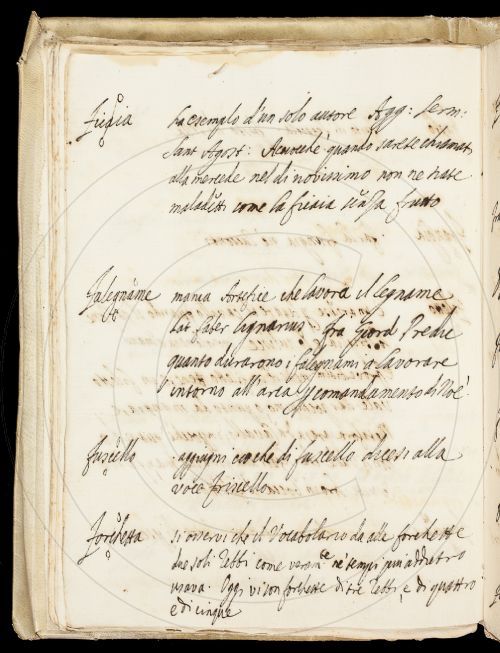 Ficaia
ha esemplo d'un solo autore Agg: Serm:
Sant Agost: Acciocchè quando sarete chiamati
alla mercede nel dì novissimo non ne siate
maladetti come la ficaia senza frutto
Falegname
manca Artefice che lavora il legname
Lat faber lignarius fra Giord Pred
quanto durarono i falegnami a lavorare
intorno all'arca comandamento di Noè
fuscello
aggiugni che di fuscello dicesi alla
voce frinello
Forchetta
si osservi che il Vocabolario dà alle forchette
due soli rebbi come veram.e ne' tempi più addietro
usava. Oggi vi son forchette di tre rebbi, e di quattro
e di cinque